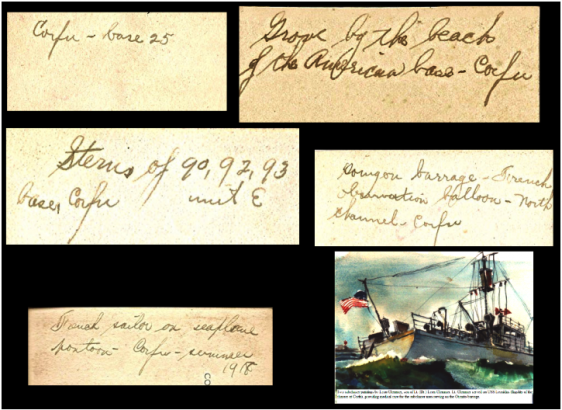 Corfu - base 25
Grove by the beach
of the American base - Corfu
Sterns of 90, 92, 93
base, Corfu unit E
barrage - French
observation balloon - North
channel - Corfu
French sailor on seaplane
pontoon - Corfu - summer
1918